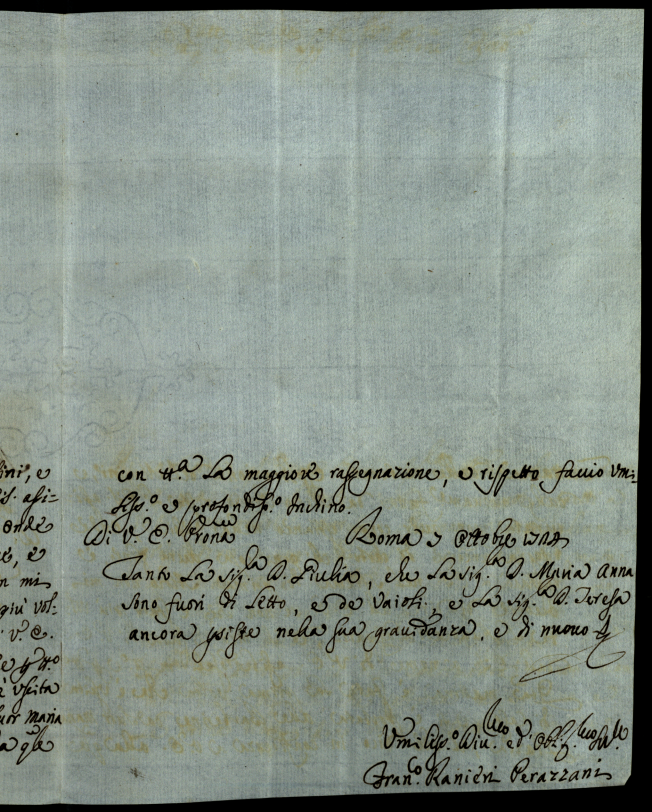 ini, e
asi=
onde
e, e
n mi
più vol=
V. E.
e p tt.o
è uscita
uor Maria
da q.le
con tt.a La maggiore rassegnazione, e rispetto faccio Umi=
liss.o e profondiss.o Inchino.
Di V. E. Prona Roma 9 Ottobre 1784
Tanto La Sig.ra D. Giulia, che La Sig.ra D. Maria Anna
sono fuori di Letto, e de Vaioli, e La Sig.ra D. Teresa
ancora psiste nella sua gravidanza, e di nuovo
Umiliss.o Div.mo ed Obb.mo Ser.
Fran.co Ranieri Perazzani